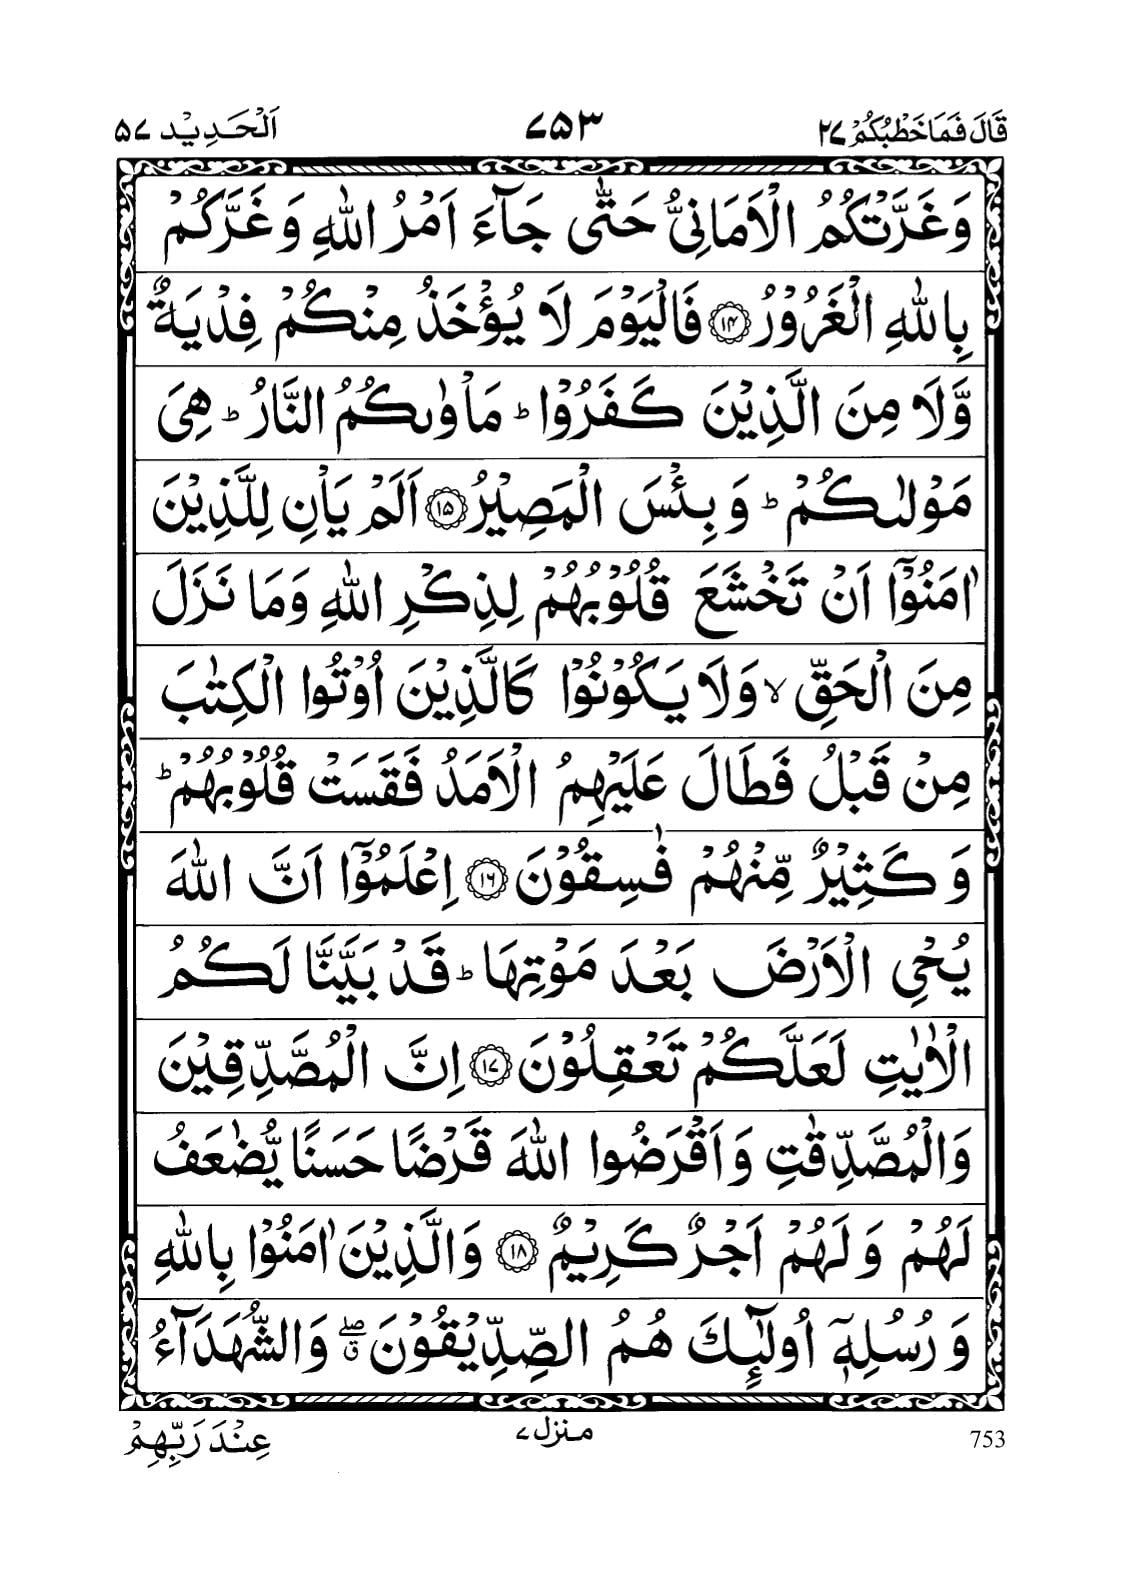 قَالَ فَمَا خَطْبُكُمْ ٢٧ ٧٥٣ اَلْحَدِيْد ٥٧
وَ غَرَّتْكُمُ الْاَمَانِیُّ حَتّٰى جَآءَ اَمْرُ اللّٰهِ وَ غَرَّكُمْ
بِاللّٰهِ الْغَرُوْرُ ﴿١٤﴾ فَالْيَوْمَ لَا يُؤْخَذُ مِنْكُمْ فِدْيَةٌ
وَّلَا مِنَ الَّذِيْنَ كَفَرُوْا ؕ مَاْوٰىكُمُ النَّارُ ؕ هِیَ
مَوْلٰىكُمْ ؕ وَ بِئْسَ الْمَصِيْرُ ﴿١٥﴾ اَلَمْ يَاْنِ لِلَّذِيْنَ
اٰمَنُوْۤا اَنْ تَخْشَعَ قُلُوْبُهُمْ لِذِكْرِ اللّٰهِ وَمَا نَزَلَ
مِنَ الْحَقِّ ۙ وَلَا يَكُوْنُوْا كَالَّذِيْنَ اُوْتُوا الْكِتٰبَ
مِنْ قَبْلُ فَطَالَ عَلَيْهِمُ الْاَمَدُ فَقَسَتْ قُلُوْبُهُمْ ؕ
وَ كَثِيْرٌ مِّنْهُمْ فٰسِقُوْنَ ﴿١٦﴾ اِعْلَمُوْۤا اَنَّ اللّٰهَ
يُحْیِ الْاَرْضَ بَعْدَ مَوْتِهَا ؕ قَدْ بَيَّنَّا لَكُمُ
الْاٰيٰتِ لَعَلَّكُمْ تَعْقِلُوْنَ ﴿١٧﴾ اِنَّ الْمُصَّدِّقِيْنَ
وَالْمُصَّدِّقٰتِ وَاَقْرَضُوا اللّٰهَ قَرْضًا حَسَنًا يُّضٰعَفُ
لَهُمْ وَ لَهُمْ اَجْرٌ كَرِيْمٌ ﴿١٨﴾ وَالَّذِيْنَ اٰمَنُوْا بِاللّٰهِ
وَ رُسُلِهٖۤ اُولٰٓئِكَ هُمُ الصِّدِّيْقُوْنَ ۖۗ وَالشُّهَدَآءُ
753 منزل ٧ عِنْدَ رَبِّهِمْ